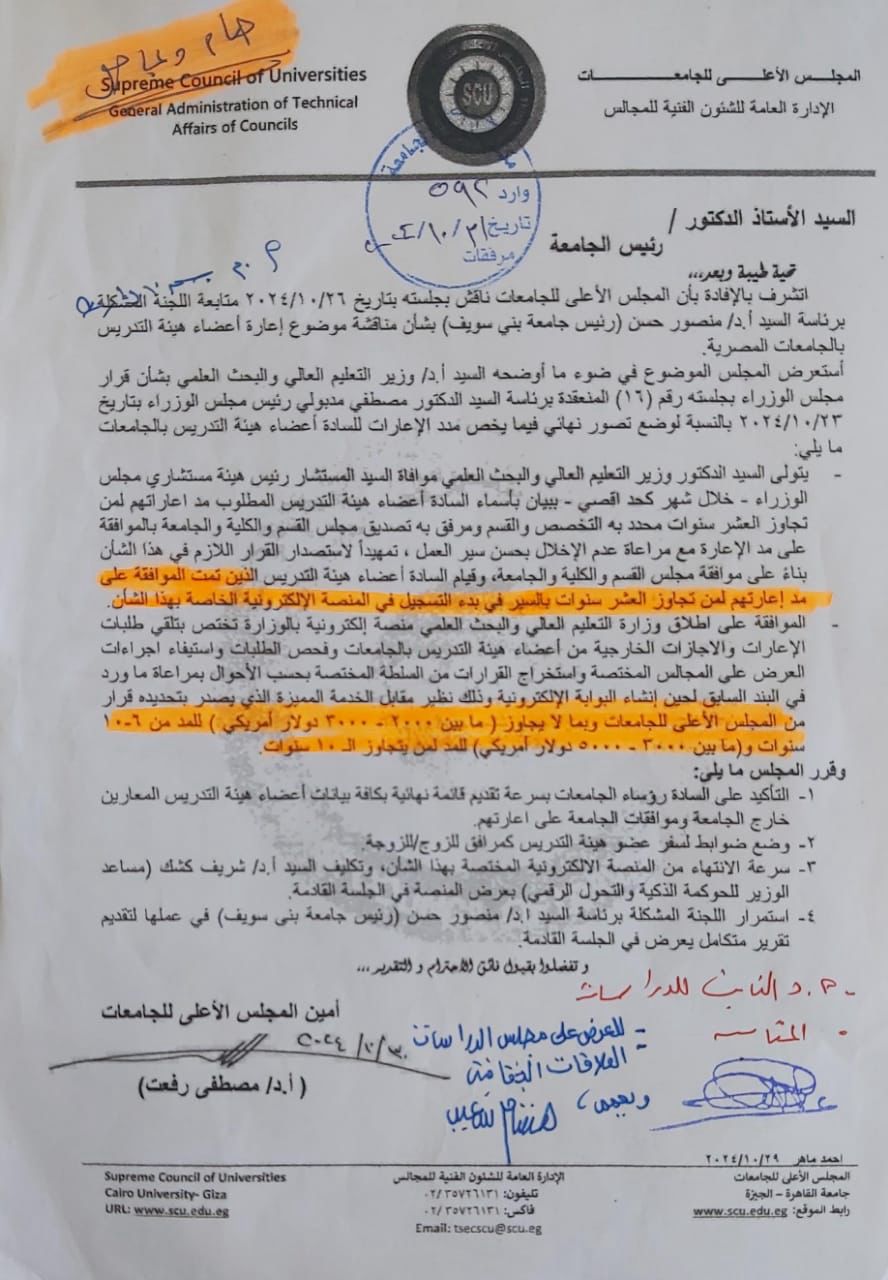 هام وعاجل
Supreme Council of Universities
General Administration of Technical
Affairs of Councils
SCU
المجلس الأعلى للجامعات
الإدارة العامة للشئون الفنية للمجالس
وارد ٥٩٢
تاريخ ٣١/١٠/
مرفقات
السيد الأستاذ الدكتور /
رئيس الجامعة
تحية طيبة وبعد،،،
اتشرف بالإفادة بأن المجلس الأعلى للجامعات ناقش بجلسته بتاريخ ٢٠٢٤/١٠/٢٦ متابعة اللجنة المشكلة
برئاسة السيد أ.د/ منصور حسن (رئيس جامعة بني سويف) بشأن مناقشة موضوع إعارة أعضاء هيئة التدريس
بالجامعات المصرية.
أستعرض المجلس الموضوع في ضوء ما أوضحه السيد أ.د/ وزير التعليم العالي والبحث العلمي بشأن قرار
مجلس الوزراء بجلسته رقم (١٦) المنعقدة برئاسة السيد الدكتور مصطفي مدبولي رئيس مجلس الوزراء بتاريخ
٢٠٢٤/١٠/٢٣ بالنسبة لوضع تصور نهائي فيما يخص مدد الإعارات للسادة أعضاء هيئة التدريس بالجامعات
ما يلي:
- يتولى السيد الدكتور وزير التعليم العالي والبحث العلمي موافاة السيد المستشار رئيس هيئة مستشاري مجلس
الوزراء - خلال شهر كحد اقصي - ببيان بأسماء السادة أعضاء هيئة التدريس المطلوب مد اعاراتهم لمن
تجاوز العشر سنوات محدد به التخصص والقسم ومرفق به تصديق مجلس القسم والكلية والجامعة بالموافقة
على مد الإعارة مع مراعاة عدم الإخلال بحسن سير العمل ، تمهيداً لاستصدار القرار اللازم في هذا الشأن
بناءً على موافقة مجلس القسم والكلية والجامعة، وقيام السادة أعضاء هيئة التدريس الذين تمت الموافقة على
مد إعارتهم لمن تجاوز العشر سنوات بالسير في بدء التسجيل في المنصة الإلكترونية الخاصة بهذا الشأن.
- الموافقة على اطلاق وزارة التعليم العالي والبحث العلمي منصة إلكترونية بالوزارة تختص بتلقي طلبات
الإعارات والاجازات الخارجية من أعضاء هيئة التدريس بالجامعات وفحص الطلبات واستيفاء اجراءات
العرض على المجالس المختصة واستخراج القرارات من السلطة المختصة بحسب الأحوال بمراعاة ما ورد
في البند السابق لحين إنشاء البوابة الإلكترونية وذلك نظير مقابل الخدمة المميزة الذي يصدر بتحديده قرار
من المجلس الأعلى للجامعات وبما لا يجاوز ( ما بين ٢٠٠٠ - ٣٠٠٠ دولار أمريكي ) للمد من ٦-١٠
سنوات و(ما بين ٣٠٠٠ - ٥٠٠٠ دولار أمريكي) للمد لمن يتجاوز الـ ١٠ سنوات.
وقرر المجلس ما يلي:
١- التأكيد على السادة رؤساء الجامعات بسرعة تقديم قائمة نهائية بكافة بيانات أعضاء هيئة التدريس المعارين
خارج الجامعة وموافقات الجامعة على اعارتهم.
٢- وضع ضوابط لسفر عضو هيئة التدريس كمرافق للزوج/للزوجة.
٣- سرعة الانتهاء من المنصة الالكترونية المختصة بهذا الشأن، وتكليف السيد أ.د/ شريف كشك (مساعد
الوزير للحوكمة الذكية والتحول الرقمي) بعرض المنصة في الجلسة القادمة.
٤- استمرار اللجنة المشكلة برئاسة السيد ا.د/ منصور حسن (رئيس جامعة بنى سويف) في عملها لتقديم
تقرير متكامل يعرض في الجلسة القادمة.
وتفضلوا بقبول فائق الاحترام و التقدير ،،،
أمين المجلس الأعلى للجامعات
٢٠٢٤/١٠/٣٠
( أ.د/ مصطفى رفعت)
- أ.د النائب للدراسات
- للعرض على مجلس الدراسات
العلاقات الثقافية
احمد ماهر ٢٠٢٤/١٠/٢٩
Supreme Council of Universities
Cairo University- Giza
URL: www.scu.edu.eg
الإدارة العامة للشئون الفنية للمجالس
تليفون: ٠٢/٣٥٧٢٦١٣١
فاكس: ٠٢/٣٥٧٢٦١٣١
Email: tsecscu@scu.eg
المجلس الأعلى للجامعات
جامعة القاهرة - الجيزة
رابط الموقع: www.scu.edu.eg